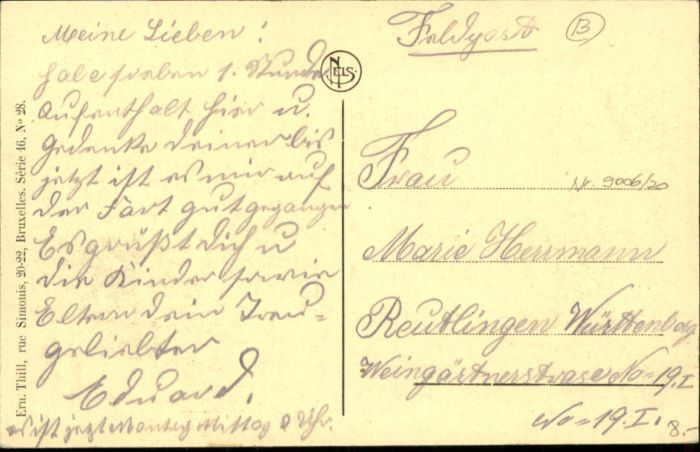 Meine Lieben!
habe soeben 1. Stunde
Aufenthalt hier u.
gedenke deiner bis
jetzt ist es mir auf
der Fart gut gegangen
Es grüßt Dich u
die Kinder sowie
Eltern dein Treu-
geliebter
Eduard.
es ist jetzt Montag Mittag 2 Uhr.
Ern. Thill, rue Simonis, 20-22, Bruxelles. Série 16, No 28.
NELS
Feldpost
B
Frau
Nr. 9006/20
Marie Herrmann
Reutlingen Württenberg
Weingärtnerstrase No=19.I
No=19.I.
8.-